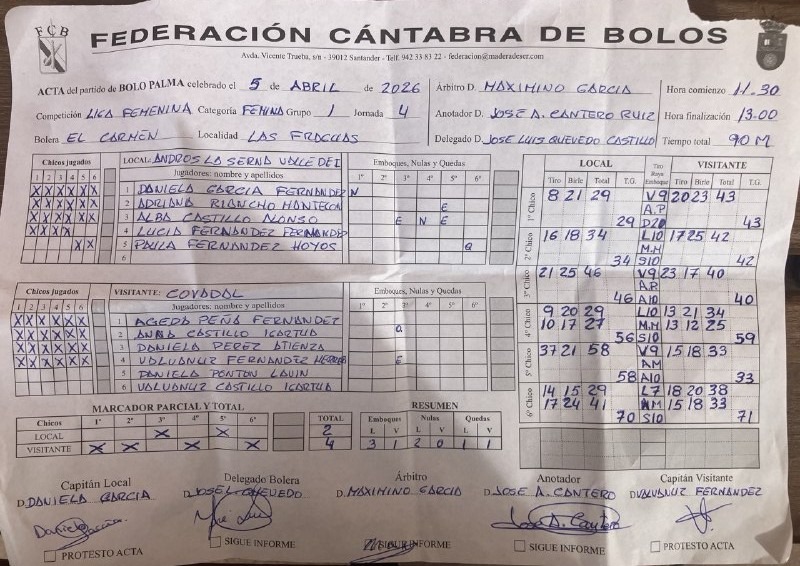 FCB
FEDERACIÓN CÁNTABRA DE BOLOS
Avda. Vicente Trueba, s/n - 39012 Santander - Telf. 942 33 83 22 - federacion@maderadeser.com
ACTA del partido de BOLO PALMA celebrado el 5 de ABRIL de 2026
Competición LIGA FEMENINA Categoría FEMINA Grupo 1 Jornada 4
Bolera EL CARMEN Localidad LAS FRAGUAS
Árbitro D. MAXIMINO GARCIA
Anotador D. JOSE A. CANTERO RUIZ
Delegado D. JOSE LUIS QUEVEDO CASTILLO
Hora comienzo 11.30
Hora finalización 13.00
Tiempo total 90 M
Chicos jugados LOCAL: ANDROS LA SERNA VALLE DEI Emboques, Nulas y Quedas
1 2 3 4 5 6 Jugadores: nombre y apellidos 1º 2º 3º 4º 5º 6º
X X X X X X 1 DANIELA GARCIA FERNANDEZ N
X X X X X X 2 ADRIANA RIANCHO MANTECON E
X X X X X X 3 ALBA CASTILLO ALONSO E N E
X X X X 4 LUCIA FERNANDEZ FERNANDEZ
X X 5 PAULA FERNANDEZ HOYOS Q
6
Chicos jugados VISITANTE: COVADAL Emboques, Nulas y Quedas
1 2 3 4 5 6 Jugadores: nombre y apellidos 1º 2º 3º 4º 5º 6º
X X X X X X 1 AGEDA PEÑA FERNANDEZ
X X X X X X 2 ANNA CASTILLO ICARTUA Q
X X X X X X 3 DANIELA PEREZ ATIENZA
X X X X X X 4 VALVANUZ FERNANDEZ E
5 DANIELA PONTON LAVIN
6 VALVANUZ CASTILLO ICARTUA
MARCADOR PARCIAL Y TOTAL
Chicos 1º 2º 3º 4º 5º 6º TOTAL
LOCAL X X 2
VISITANTE X X X X 4
RESUMEN
Emboques Nulas Quedas
L V L V L V
3 1 2 0 1 1
LOCAL Tiro Raya Emboque VISITANTE
Tiro Birle Total T.G. Tiro Birle Total T.G.
1º Chico 8 21 29 V9 20 23 43
A.P
29 D20 43
2º Chico 16 18 34 L10 17 25 42
M.M
34 S10 42
3º Chico 21 25 46 V9 23 17 40
A.P.
46 A10 40
4º Chico 9 20 29 L10 13 21 34
10 17 27 M.M 13 12 25
56 S10 59
5º Chico 37 21 58 V9 15 18 33
AM
58 A10 33
6º Chico 14 15 29 L7 18 20 38
17 24 41 AM 15 18 33
70 S10 71
Capitán Local
D. DANIELA GARCIA
PROTESTO ACTA
Delegado Bolera
D. JOSE L. QUEVEDO
SIGUE INFORME
Árbitro
D. MAXIMINO GARCIA
SIGUE INFORME
Anotador
D. JOSE A. CANTERO
Jose A. Cantero
SIGUE INFORME
Capitán Visitante
D. VALVANUZ FERNANDEZ
PROTESTO ACTA